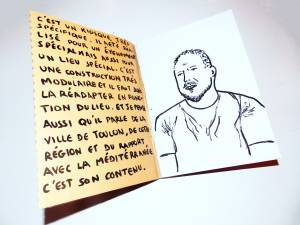 C'EST UN KIOSQUE TRÈS
SPÉCIFIQUE. IL A ÉTÉ
LISÉ POUR UN ÉVÉNEMENT
SPÉCIAL MAIS AUSSI POUR
UN LIEU SPÉCIAL. C'EST
UNE CONSTRUCTION TRÈS
MODULAIRE ET IL FAUT
LA RÉADAPTER EN FONC-
TION DU LIEU. ET JE PENSE
AUSSI QU'IL PARLE DE LA
VILLE DE TOULON, DE CETTE
RÉGION ET DU RAPPORT
AVEC LA MÉDITERRANÉE
C'EST SON CONTENU.